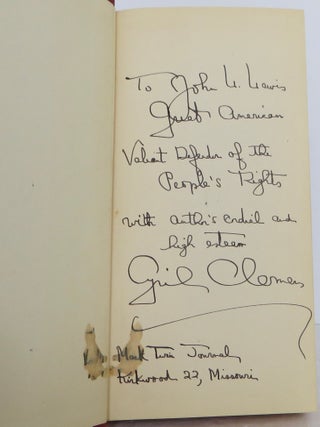 To John L. Lewis
Great American
Valiant Defender of the
People's Rights
with author's cordial and
high esteem
Cyril Clemens
Mark Twain Journal
Kirkwood 22, Missouri